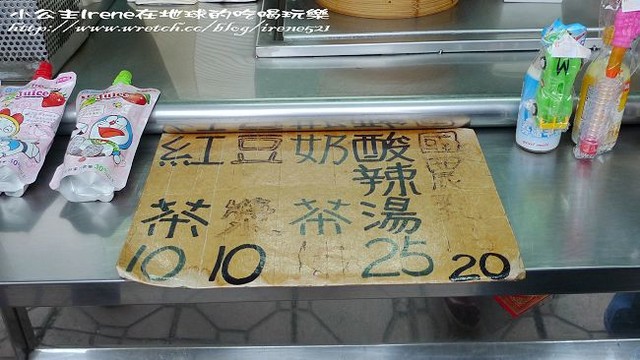 小公主Irene在地球的吃喝玩樂
http://www.wretch.cc/blog/irene521
Juice
Juice
紅茶 10
豆漿 10
奶茶
酸辣湯 25
國農 20